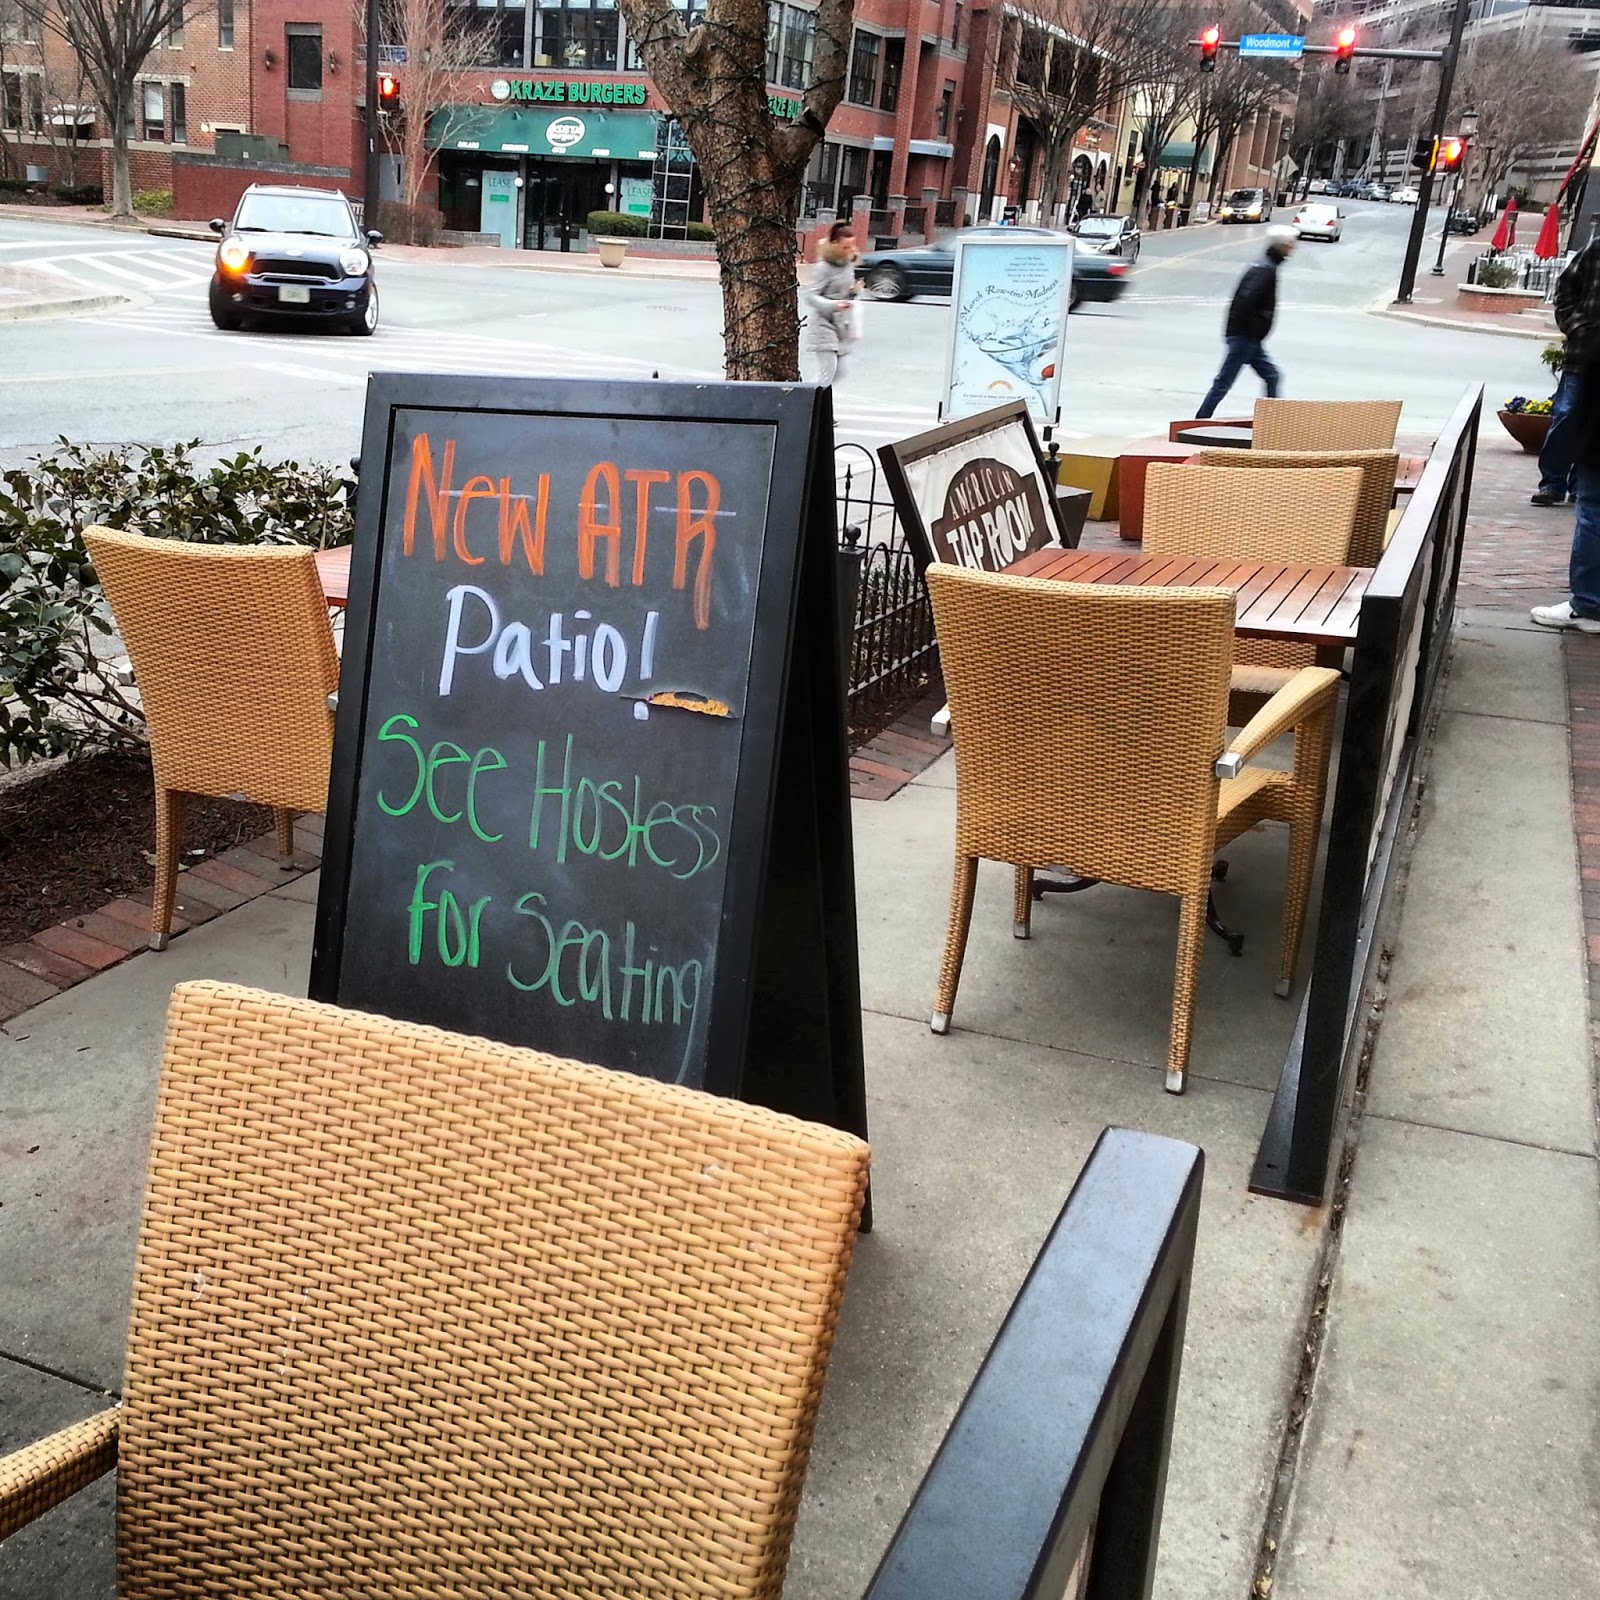 Woodmont Av
KRAZE BURGERS
LEASE
LEASE
March Row-tini Madness
AMERICAN
TAP ROOM
New ATR
Patio!
See Hostess
For Seating